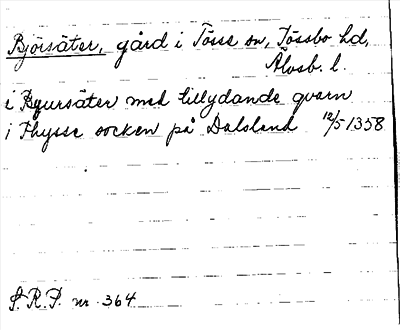 Björsäter, gård i Tösse sn, Tössbo hd,
Älvsb. l.
i Byursäter med tillydande qvarn
i Thysse socken på Dalsland 12/5 1358
S. R. P. nr 364